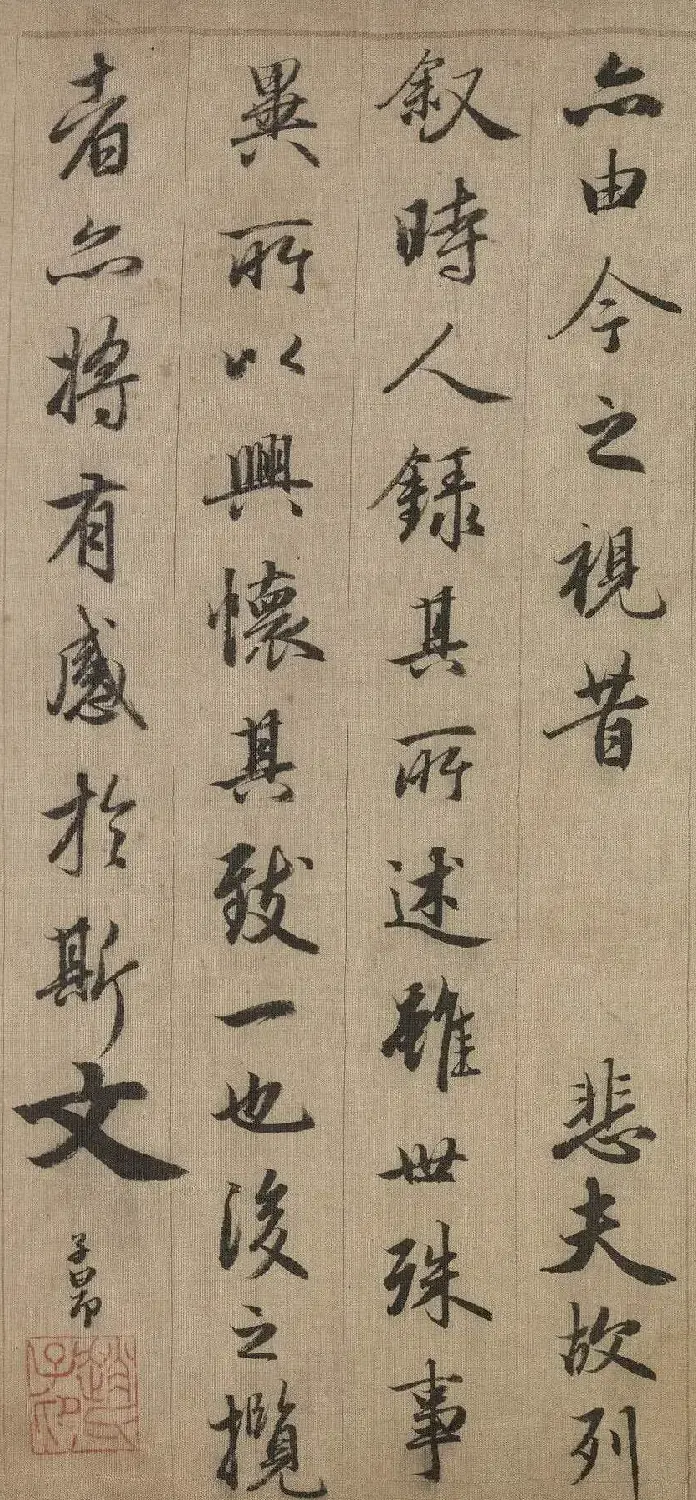 亦由今之視昔　　悲夫故列
叙時人録其所述雖世殊事
異所以興懷其致一也後之攬
者亦將有感於斯文
子昂
趙氏子昂